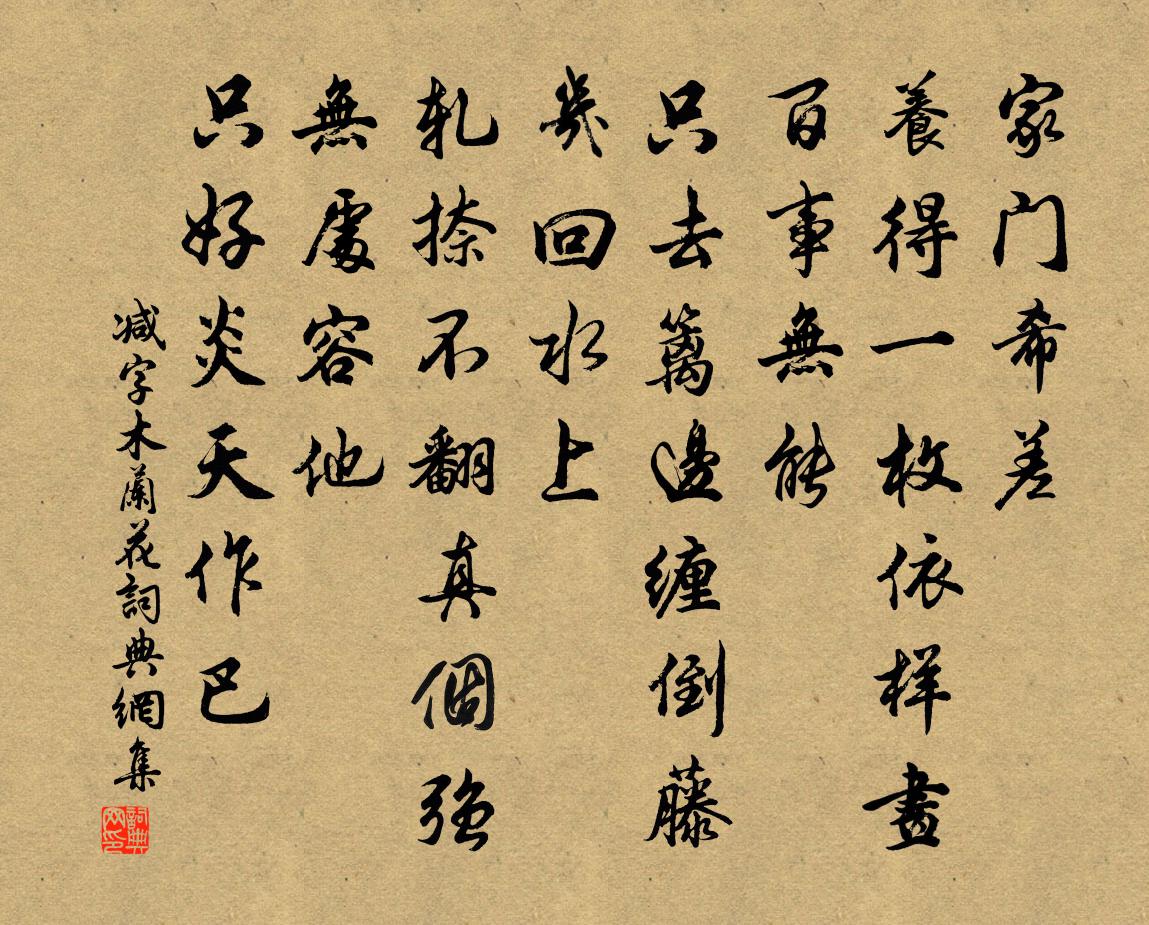 家门希差
養得一枚依样畫
百事無能
只去籬邊缠倒藤
幾回水上
軋捺不翻真個强
無處容他
只好炎天作巴
减字木蘭花詞典網集
詞典网印